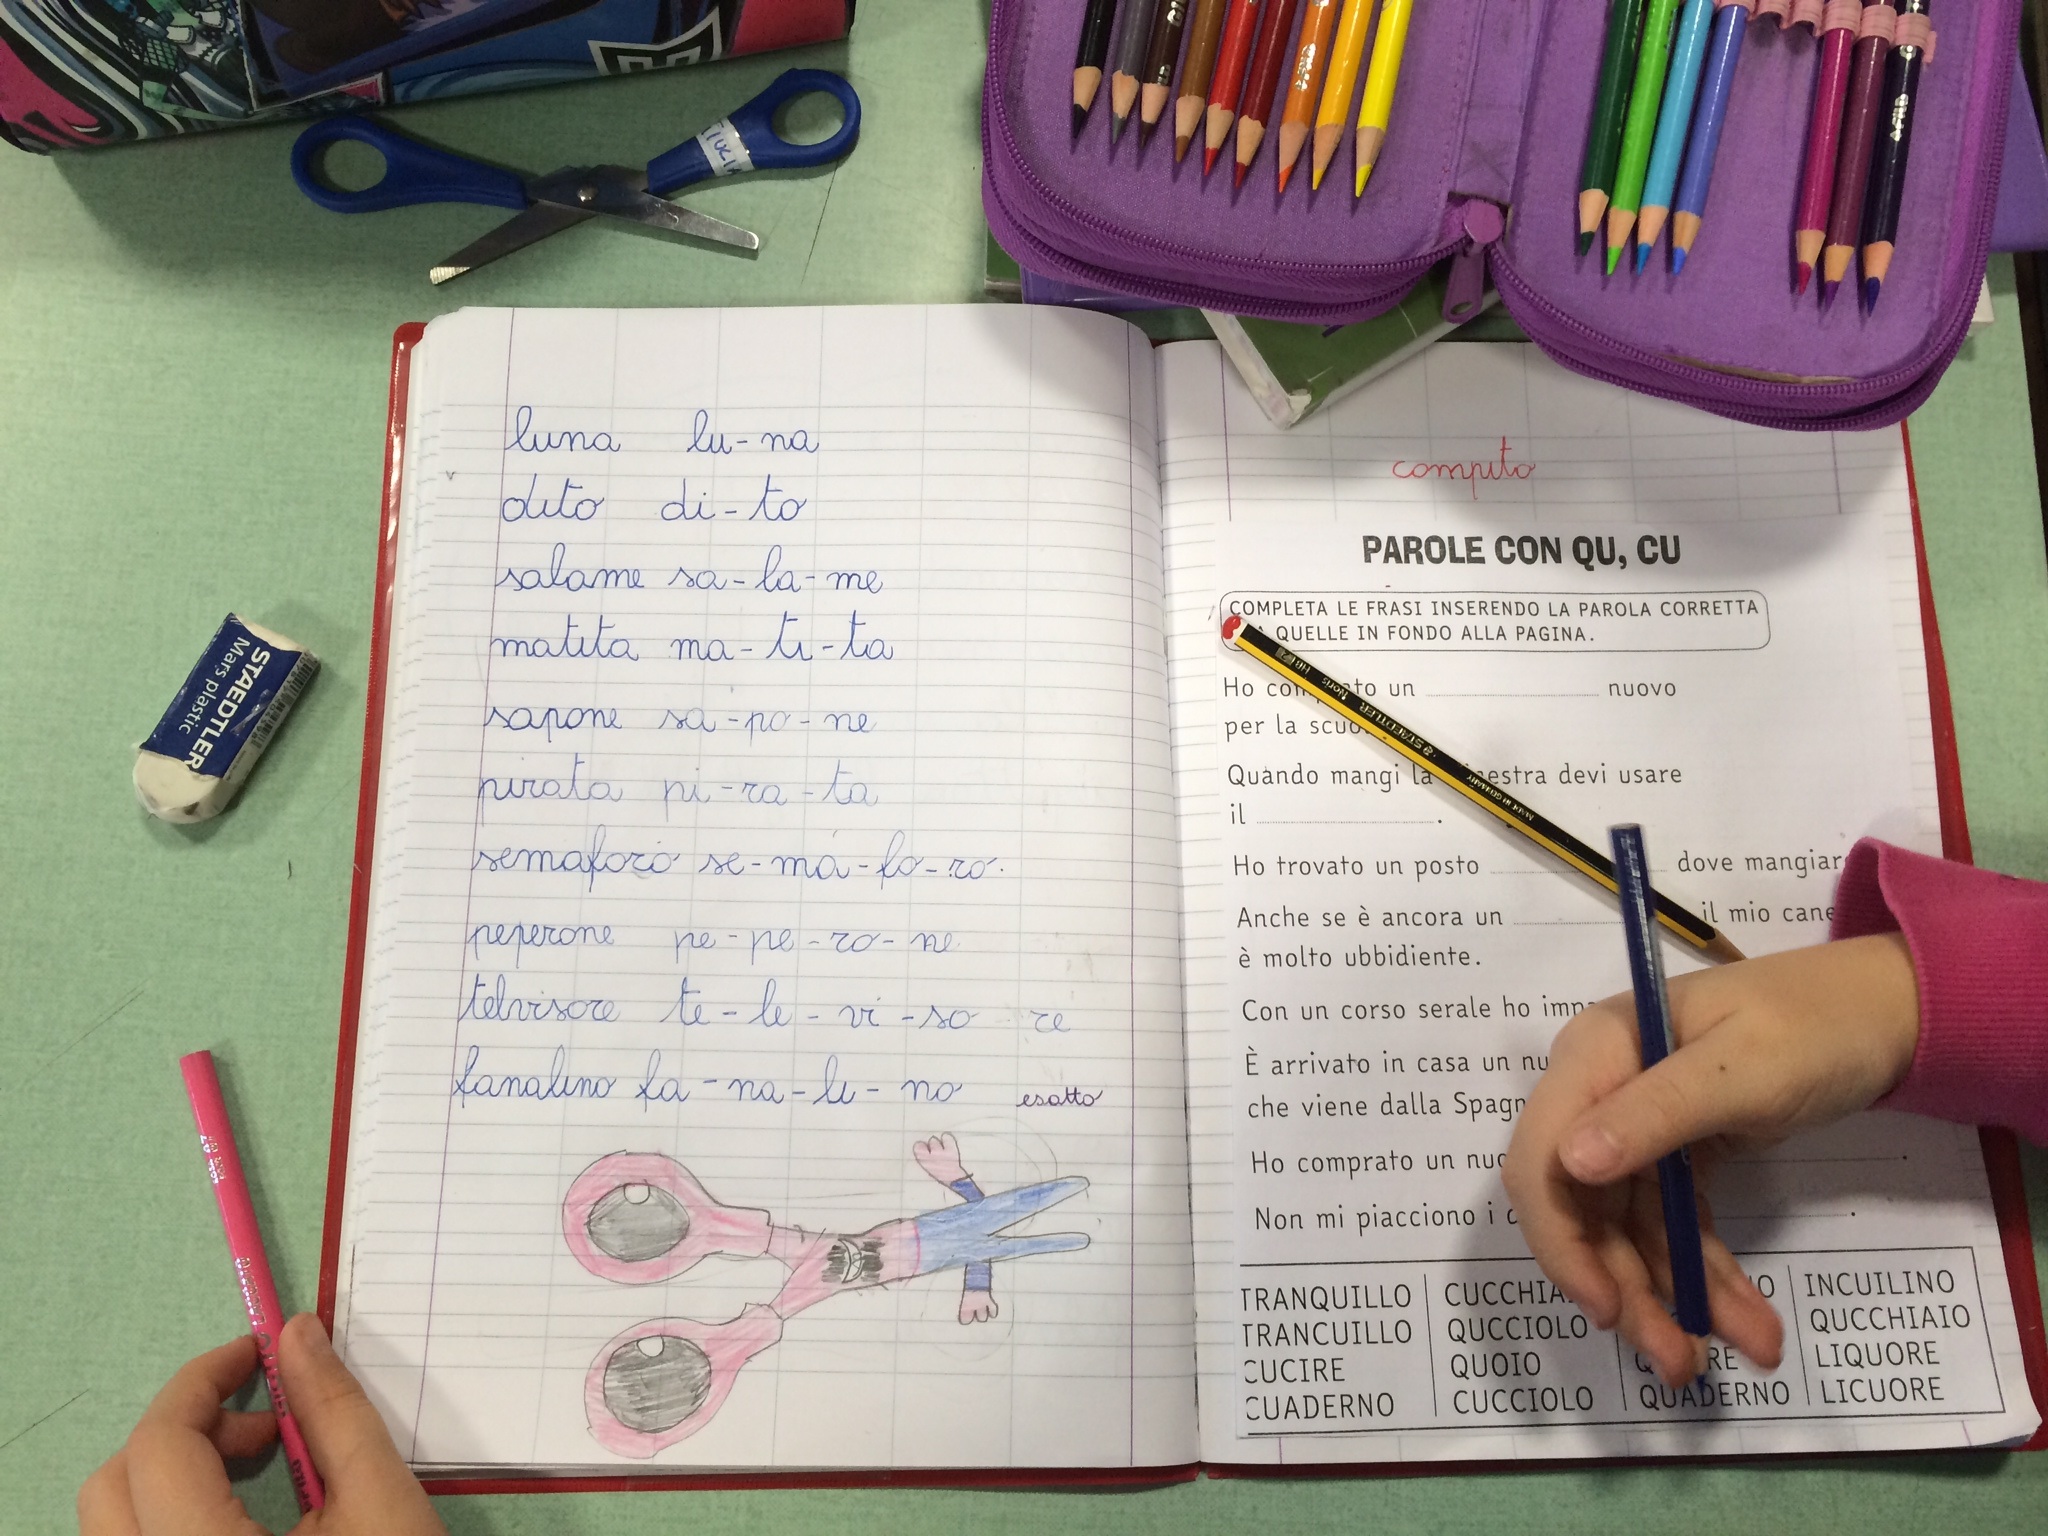 luna lu-na
dito di-to
salame sa-la-me
matita ma-ti-ta
sapone sa-po-ne
pirata pi-ra-ta
semaforo se-ma-fo-ro.
peperone pe-pe-ro-ne
telvisore te-le-vi-so re
fanalino fa-na-li-no esatto
compito
PAROLE CON QU, CU
COMPLETA LE FRASI INSERENDO LA PAROLA CORRETTA
QUELLE IN FONDO ALLA PAGINA.
Ho un nuovo
per la
Quando mangi la devi usare
il .
Ho trovato un posto dove
Anche se è ancora un il mio cane
è molto ubbidiente.
Con un corso serale ho
È arrivato in casa un
che viene dalla
Ho comprato un .
Non mi piacciono i .
TRANQUILLO CUCCHIA INCUILINO
TRANCUILLO QUCCIOLO QUCCHIAIO
CUCIRE QUOIO LIQUORE
CUADERNO CUCCIOLO QUADERNO LICUORE
STAEDTLER
Mars plastic
STAEDTLER
Noris HB 2
MADE IN GERMANY